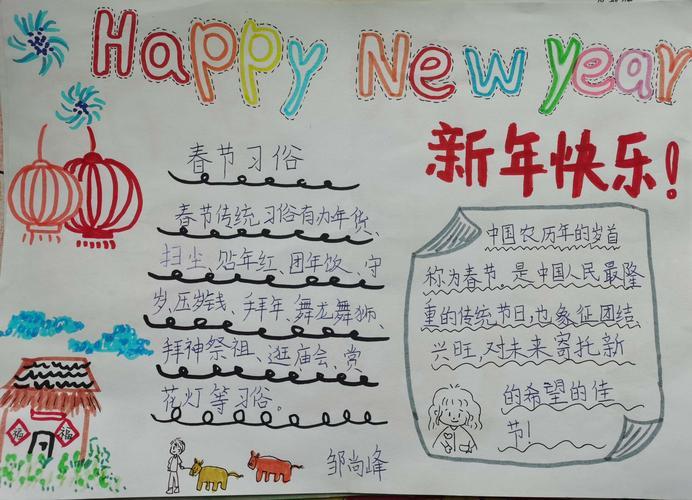 Happy New year
新年快乐!
春节习俗
春节传统习俗有办年货、
扫尘、贴年红、团年饭、守
岁、压岁钱、拜年、舞龙舞狮、
拜神祭祖、逛庙会、赏
花灯等习俗。
邹尚峰
中国农历年的岁首
称为春节。是中国人民最隆
重的传统节日,也象征团结、
兴旺,对未来寄托新
的希望的佳
节!
福
福